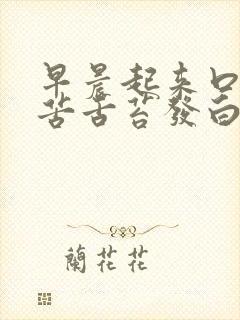 早晨起来口
苦舌苔發白
蘭花花